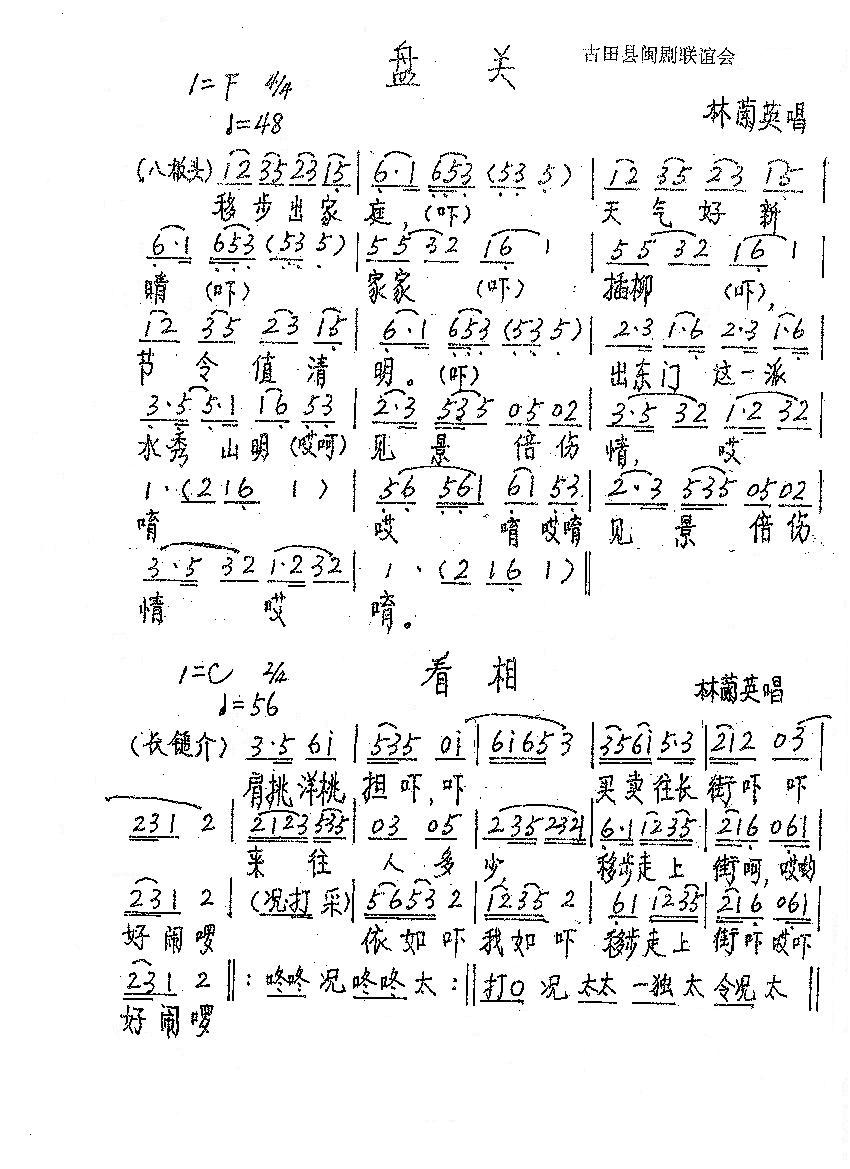 盘美 古田县闽剧联谊会
1=F 4/4
♩=48 林蘭英唱
(八板头) 12 35 23 15 | 6·1 653 (53 5) | 12 35 23 15 |
移步出家庭,(吓) 天气好新
6·1 653 (53 5) | 55 32 16 1 | 55 32 16 1 |
晴(吓) 家家(吓) 插柳(吓),
12 35 23 15 | 6·1 653 (53 5) | 2·3 1·6 2·3 1·6 |
节令值清明。(吓) 出东门这一派
3·5 5·1 16 53 | 2·3 535 05 02 | 3·5 32 1·2 32 |
水秀山明(哎呵) 见景倍伤情, 哎
1·(2 16 1) | 56 561 61 53 | 2·3 535 05 02 |
唷 哎唷哎唷 见景倍伤
3·5 32 1·2 32 | 1·(2 16 1) ‖
情哎唷。
1=C 2/4 看相
♩=56 林蘭英唱
(长鎚介) 3·5 6i | 535 0i | 6i65 3 | 356i 5·3 | 212 03 |
肩挑洋桃担吓,吓 买卖往长街吓吓
231 2 | 2123 535 | 03 05 | 235 232 | 6·1 1235 | 216 061 |
来往人多少, 移步走上街呵,哎哟
231 2 | (况打采) | 5653 2 | 1235 2 | 61 1235 | 216 061 |
好闹啰 依如吓我如吓 移步走上街吓哎吓
231 2 ‖: 咚咚况咚咚太 :‖ 打0况太太一独太令况太 ‖
好闹啰